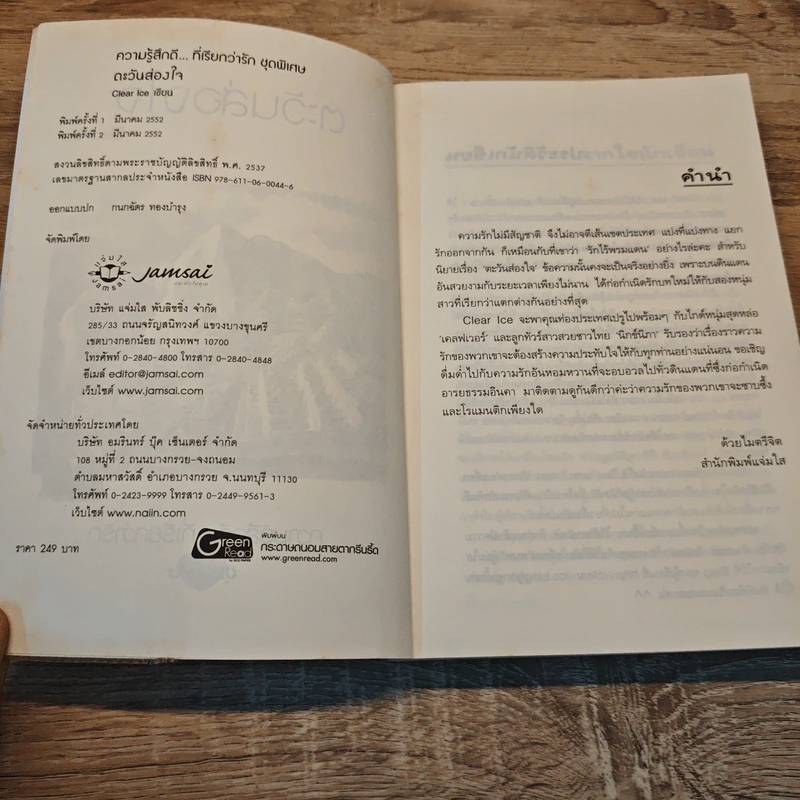 ความรู้สึกดี... ที่เรียกว่ารัก ชุดพิเศษ
ตะวันส่องใจ
Clear Ice เขียน
พิมพ์ครั้งที่ 1 มีนาคม 2552
พิมพ์ครั้งที่ 2 มีนาคม 2552
สงวนลิขสิทธิ์ตามพระราชบัญญัติลิขสิทธิ์ พ.ศ. 2537
เลขมาตรฐานสากลประจำหนังสือ ISBN 978-611-06-0044-6
ออกแบบปก กนกฉัตร ทองบำรุง
จัดพิมพ์โดย
แจ่มใส
jamsai
Jamsai
บริษัท แจ่มใส พับลิชชิ่ง จำกัด
285/33 ถนนจรัญสนิทวงศ์ แขวงบางขุนศรี
เขตบางกอกน้อย กรุงเทพฯ 10700
โทรศัพท์ 0-2840-4800 โทรสาร 0-2840-4848
อีเมล์ editor@jamsai.com
เว็บไซต์ www.jamsai.com
จัดจำหน่ายทั่วประเทศโดย
บริษัท อมรินทร์ บุ๊ค เซ็นเตอร์ จำกัด
108 หมู่ที่ 2 ถนนบางกรวย-จงถนอม
ตำบลมหาสวัสดิ์ อำเภอบางกรวย จ.นนทบุรี 11130
โทรศัพท์ 0-2423-9999 โทรสาร 0-2449-9561-3
เว็บไซต์ www.naiin.com
ราคา 249 บาท
Green Read
พิมพ์บน
กระดาษถนอมสายตากรีนรี้ด
www.greenread.com
คำนำ
ความรักไม่มีสัญชาติ จึงไม่อาจตีเส้นเขตประเทศ แบ่งที่แบ่งทาง แยก
รักออกจากกัน ก็เหมือนกับที่เขาว่า 'รักไร้พรมแดน' อย่างไรล่ะคะ สำหรับ
นิยายเรื่อง 'ตะวันส่องใจ' ข้อความนั้นคงจะเป็นจริงอย่างยิ่ง เพราะบนดินแดน
อันสวยงามกับระยะเวลาเพียงไม่นาน ได้ก่อกำเนิดรักบทใหม่ให้กับสองหนุ่ม
สาวที่เรียกว่าแตกต่างกันอย่างที่สุด
Clear Ice จะพาคุณท่องประเทศเปรูไปพร้อมๆ กับไกด์หนุ่มสุดหล่อ
'เคลฟเวอร์' และลูกทัวร์สาวสวยชาวไทย 'นิกข์นิภา' รับรองว่าเรื่องราวความ
รักของพวกเขาจะต้องสร้างความประทับใจให้กับทุกท่านอย่างแน่นอน ขอเชิญ
ดื่มด่ำไปกับความรักอันหอมหวานที่จะอบอวลไปทั่วดินแดนที่ซึ่งก่อกำเนิด
อารยธรรมอินคา มาติดตามดูกันดีกว่าค่ะว่าความรักของพวกเขาจะซาบซึ้ง
และโรแมนติกเพียงใด
ด้วยไมตรีจิต
สำนักพิมพ์แจ่มใส